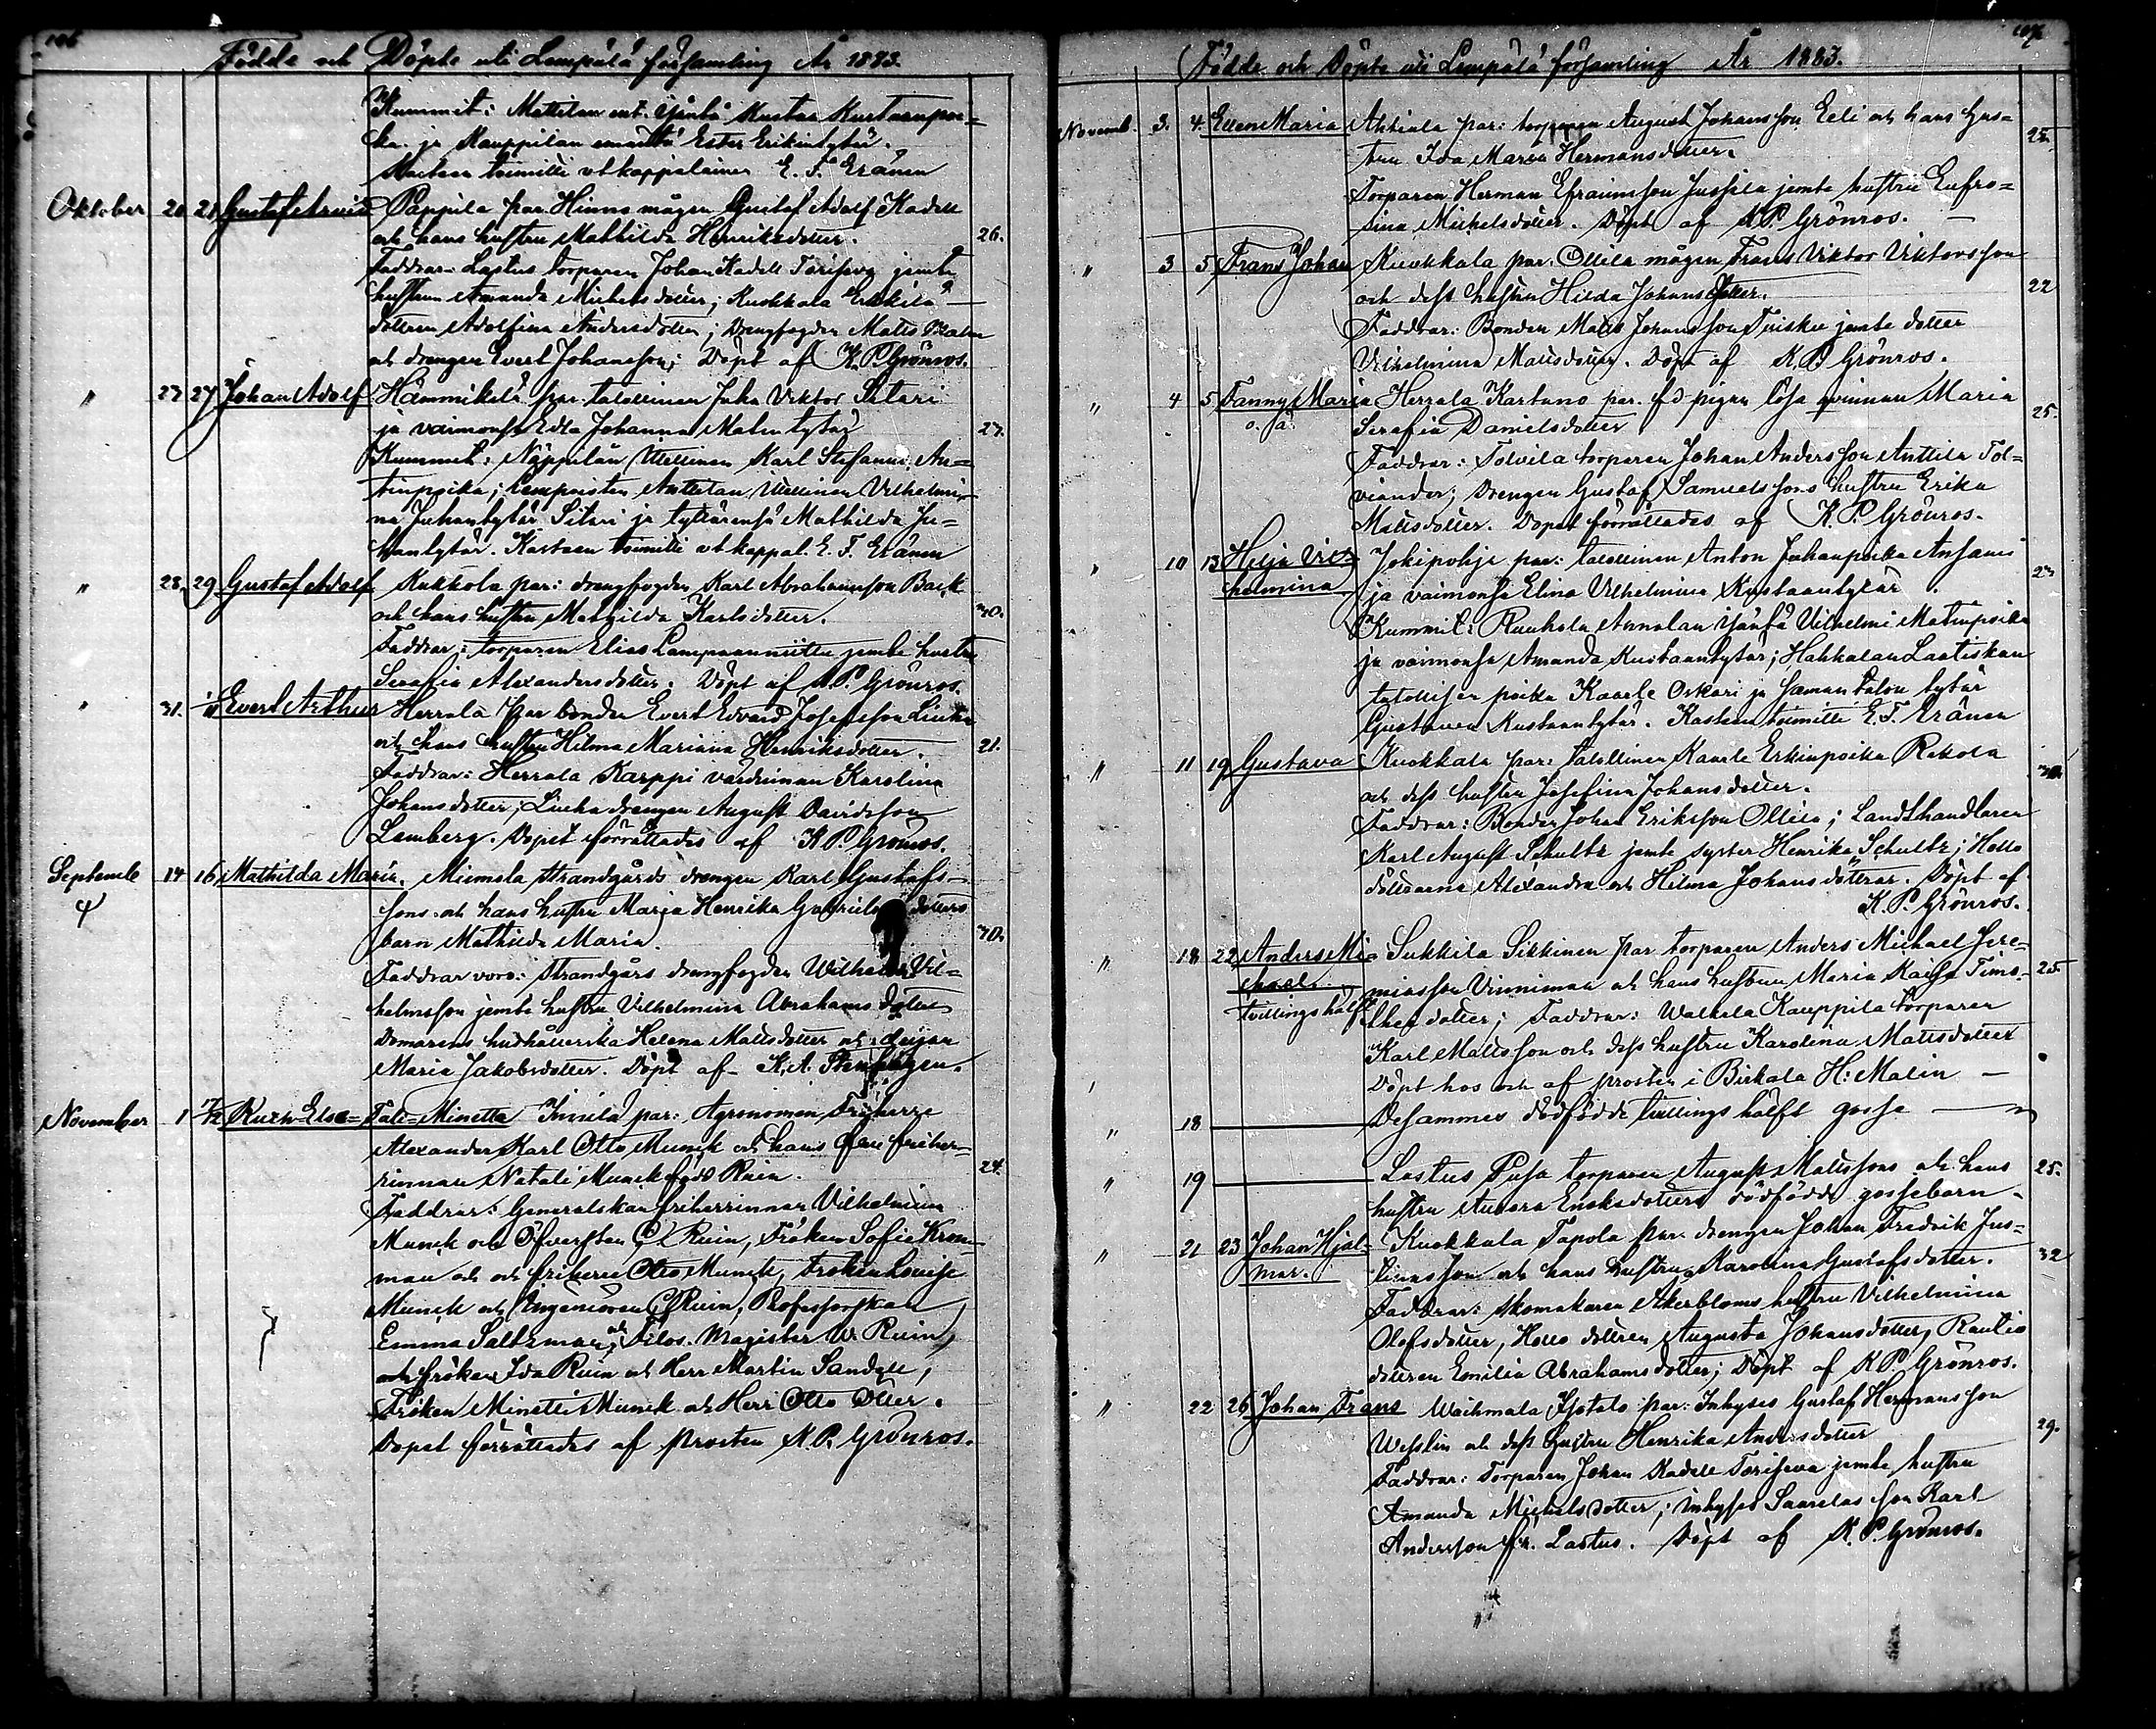 106
Födde och Döpte uti Lempälä församling År 1883.
Kummit: Mattilan ent. isäntä Kustaa Kustaanpoi=
ka ja Kauppilan emäntä Ester Erikintytär.
Kasteen toimitti vt kappalainen E. F. Eränen
Oktober 20 21 Gustaf Arvid Pappila par. Hinno mågen Gustaf Adolf Kadell
och hans hustru Mathilda Henriksdotter. 26.
Faddrar: Lastus torparen Johan Kadell jemte
hustrun Amanda Michelsdotter; Kuokkala Erkkilä
dottern Adolfina Andersdotter; Drengfogden Matts
och drengen Evert Johansson; Döpt af K. P. Grönros.
" 27 27 Johan Adolf Hämmikilä par. talollinen Juha Viktor Sitari
ja vaimonsa Edla Johanna Matintytär 27.
Kummit: Näppilän Itsellinen Karl Stefanus An=
tinpoika; Anttilan Itsellinen Vilhelmi=
na Juhantytär Sitari ja tyttärensä Mathilda Ju=
hantytär. Kasteen toimitti vt kappal. E. F. Eränen
" 28. 29 Gustaf Adolf Kukkola par: drengfogden Karl Abrahamsson Back
och hans hustru Mathilda Karlsdotter. 30.
Faddrar: torparen Elias jemte hustru
Serafia Alexandersdotter. Döpt af K. P. Grönros.
" 31. Evert Arthur Herrala par bonden Evert Edvard Josefsson Liuha
och hans hustru Hilma Mariana Henriksdotter. 21.
Faddrar: Herrala Karppi värdinnan Karolina
Johansdotter; Liuha drengen August Davidsson
Lemberg. Dopet förrättades af K P. Grönros.
Septemb 14 16 Mathilda Maria. Miemola Strandgårds drengen Karl Gustafs=
sons och hans hustru Maria Henrika Gabrielsdotters
barn Mathilda Maria. 30.
Faddrar voro: Strandgårs drengfogden Wilhelm Vil=
helmsson jemte hustru Vilhelmina Abrahamsdotter
Domarens hushållerska Helena Mattsdotter och pigan
Maria Jakobsdotter. Döpt af K. A. Stenhagen.
November 1 Ruth-Elsa= Tali=Minetta Innilä par: Agronomen Friherre
Alexander Karl Otto Munck och hans fru friher=
rinnan Natali Munck född Ruin. 24.
Faddrar: Generalskan friherrinnan Vilhelmina
Munck och Öfversten Ruin, Fröken Sofie Krom=
man och och friherre Otto Munck, Fröken Louise
Munck och Ingeniören Ruin, Professorskan
Emma Saltzman, och Filos. Magister W. Ruin,
och fröken Ida Ruin och Herr Martin Sandell,
Fröken Minetti Munck och Herr Otto Otter.
Dopet förrättades af Prosten K. P. Grönros.
107
Födde och Döpte uti Lempälä församling År 1883.
Novemb. 3. 4. Ellen Maria Ahtiala par: torparen August Johansson Eeli och hans hus=
tru Ida Maria Hermansdotter. 25.
Torparen Herman Efraimsson Jussila jemte hustru Eufro=
sina Michelsdotter. Döpt af K P. Grönros.
" 3 5 Frans Johan Kuokkala par. Ollila mågen Frans Viktor Viktorsson
och dess hustru Hilda Johansdotter. 22
Faddrar: Bonden Matts Johansson jemte dotter
Vilhelmina Mattsdotter. Döpt af K. P Grönros.
" 4 5 Fanny Maria Herrala Kartano par. fd pigan lösa qvinnan Maria
o. ä. Serafia Danielsdotter 25.
Faddrar: Tolvila torparen Johan Andersson Anttila Tol=
viander; Drengen Gustaf Samuelssons hustru Erika
Mattsdotter. Dopet förrättades af K. P. Grönros.
" 10 13 Hilja Vil=
helmina Jokipohja par: talollinen Anton Juhanpoika Anssani
ja vaimonsa Elina Vilhelmina Kustaantytär. 23
Kummit: Ruuhola Annalan isäntä Vilhelmi Matinpoika
ja vaimonsa Amanda Kustaantytär; Hahkalan Laatiskan
talollisen poika Kaarle Oskari ja saman talon tytär
Gustaava Kustaantytär. Kasteen toimitti E. F. Eränen
" 11 19 Gustava Kuokkala par: talollinen Kaarle Erkinpoika Rekola
och dess hustru Josefina Johansdotter. 30.
Faddrar: Bonden Johan Eriksson Ollila; Landthandlaren
Karl August Schultz jemte syster Henrika Schultz; Hollo
döttrarna Alexandra och Hilma Johansdöttrar. Döpt af
K. P. Grönros.
" 18 22 Anders Mi=
chael.
tvillingshälft Sukkila Sikkinen par torparen Anders Michael Jere=
miasson Vinniman och hans hustrun Maria Kaisa Timo= 25.
theidotter; Faddrar: Walkila Kauppila torparen
Karl Mattsson och dess hustru Karolina Mattsdotter
Döpt hos och af prosten i Birkala H: Malin —
" 18 — Desammes dödfödde tvillings hälft gosse —
" 19 — Lastus Pusa torparen August Mattssons och hans 25.
hustru Aurora Enoksdotters dödfödde gossebarn.
" 21 23 Johan Hjal=
mar. Kuokkala Tapola par. drengen Johan Fredrik Jus=
tinusson och hans hustru Karolina Gustafsdotter. 32
Faddrar: skomakaren Åkerbloms hustru Vilhelmina
Olofsdotter, Hollo dottren Augusta Johansdotter, Rautio
dottren Emilia Abrahamsdotter; Döpt af K P. Grönros.
" 22 26 Johan Frans Waihmala Isotalo par: Inhyses Gustaf Hermansson
Wesslin och dess hustru Henrika Andersdotter 29.
Faddrar: Torparen Johan Kadell jemte hustru
Amanda Michelsdotter, inhyses Saarelas son Karl
Andersson fr. Lastus. Döpt af K. P. Grönros.